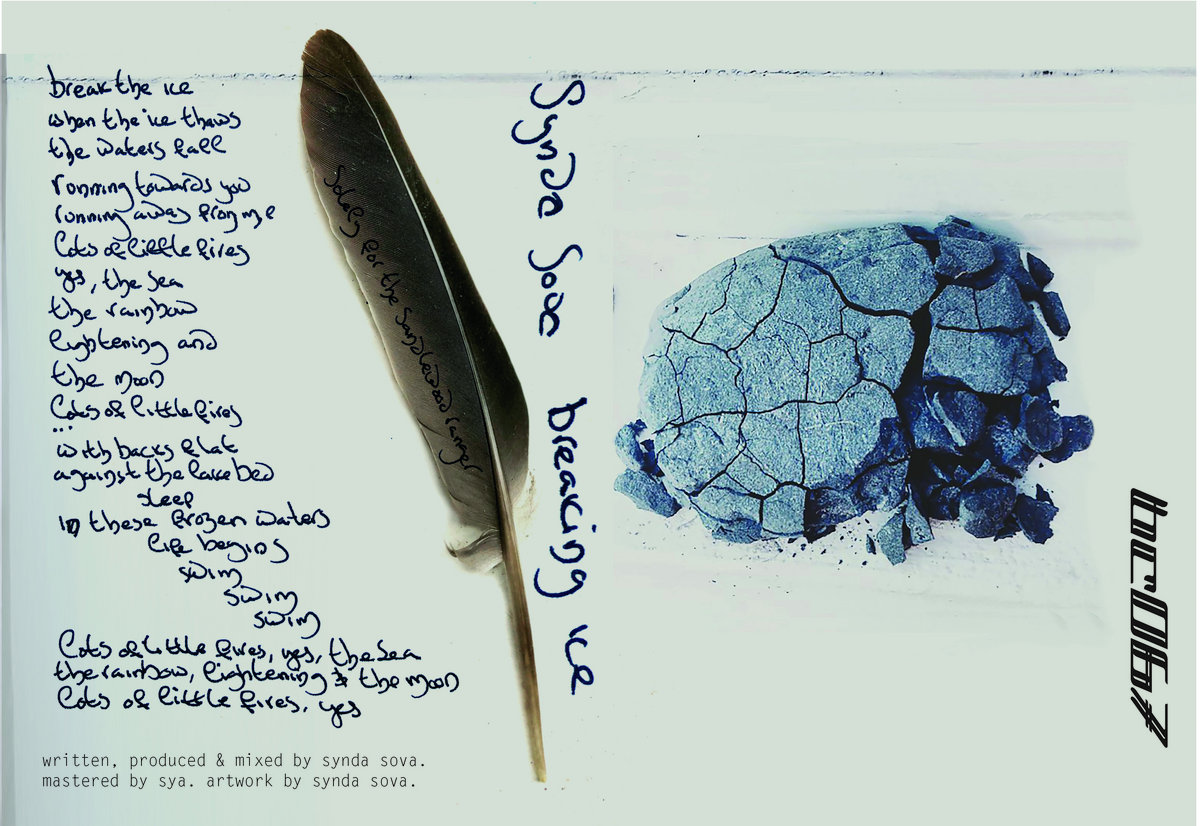 break the ice
when the ice thaws
the waters fall
running towards you
running away from me
lots of little fires
yes, the sea
the rainbow
lightening and
the moon
lots of little fires
...
with backs flat
against the lake bed
sleep
in these frozen waters
life begins
swim
swim
swim
lots of little fires, yes, the sea
the rainbow, lightening & the moon
lots of little fires, yes
written, produced & mixed by synda sova.
mastered by sya. artwork by synda sova.
Solely for the Sandlewood ranger
Synda Sova breaking ice